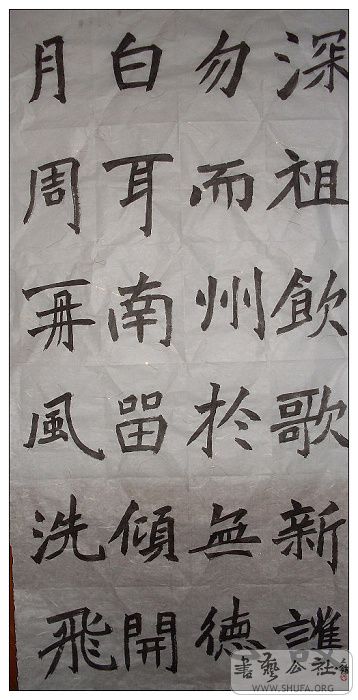 深祖飲歌新
勿而州於無德
白耳南留傾開
月周再風洗飛
書藝公社
WWW.SHUFA.ORG